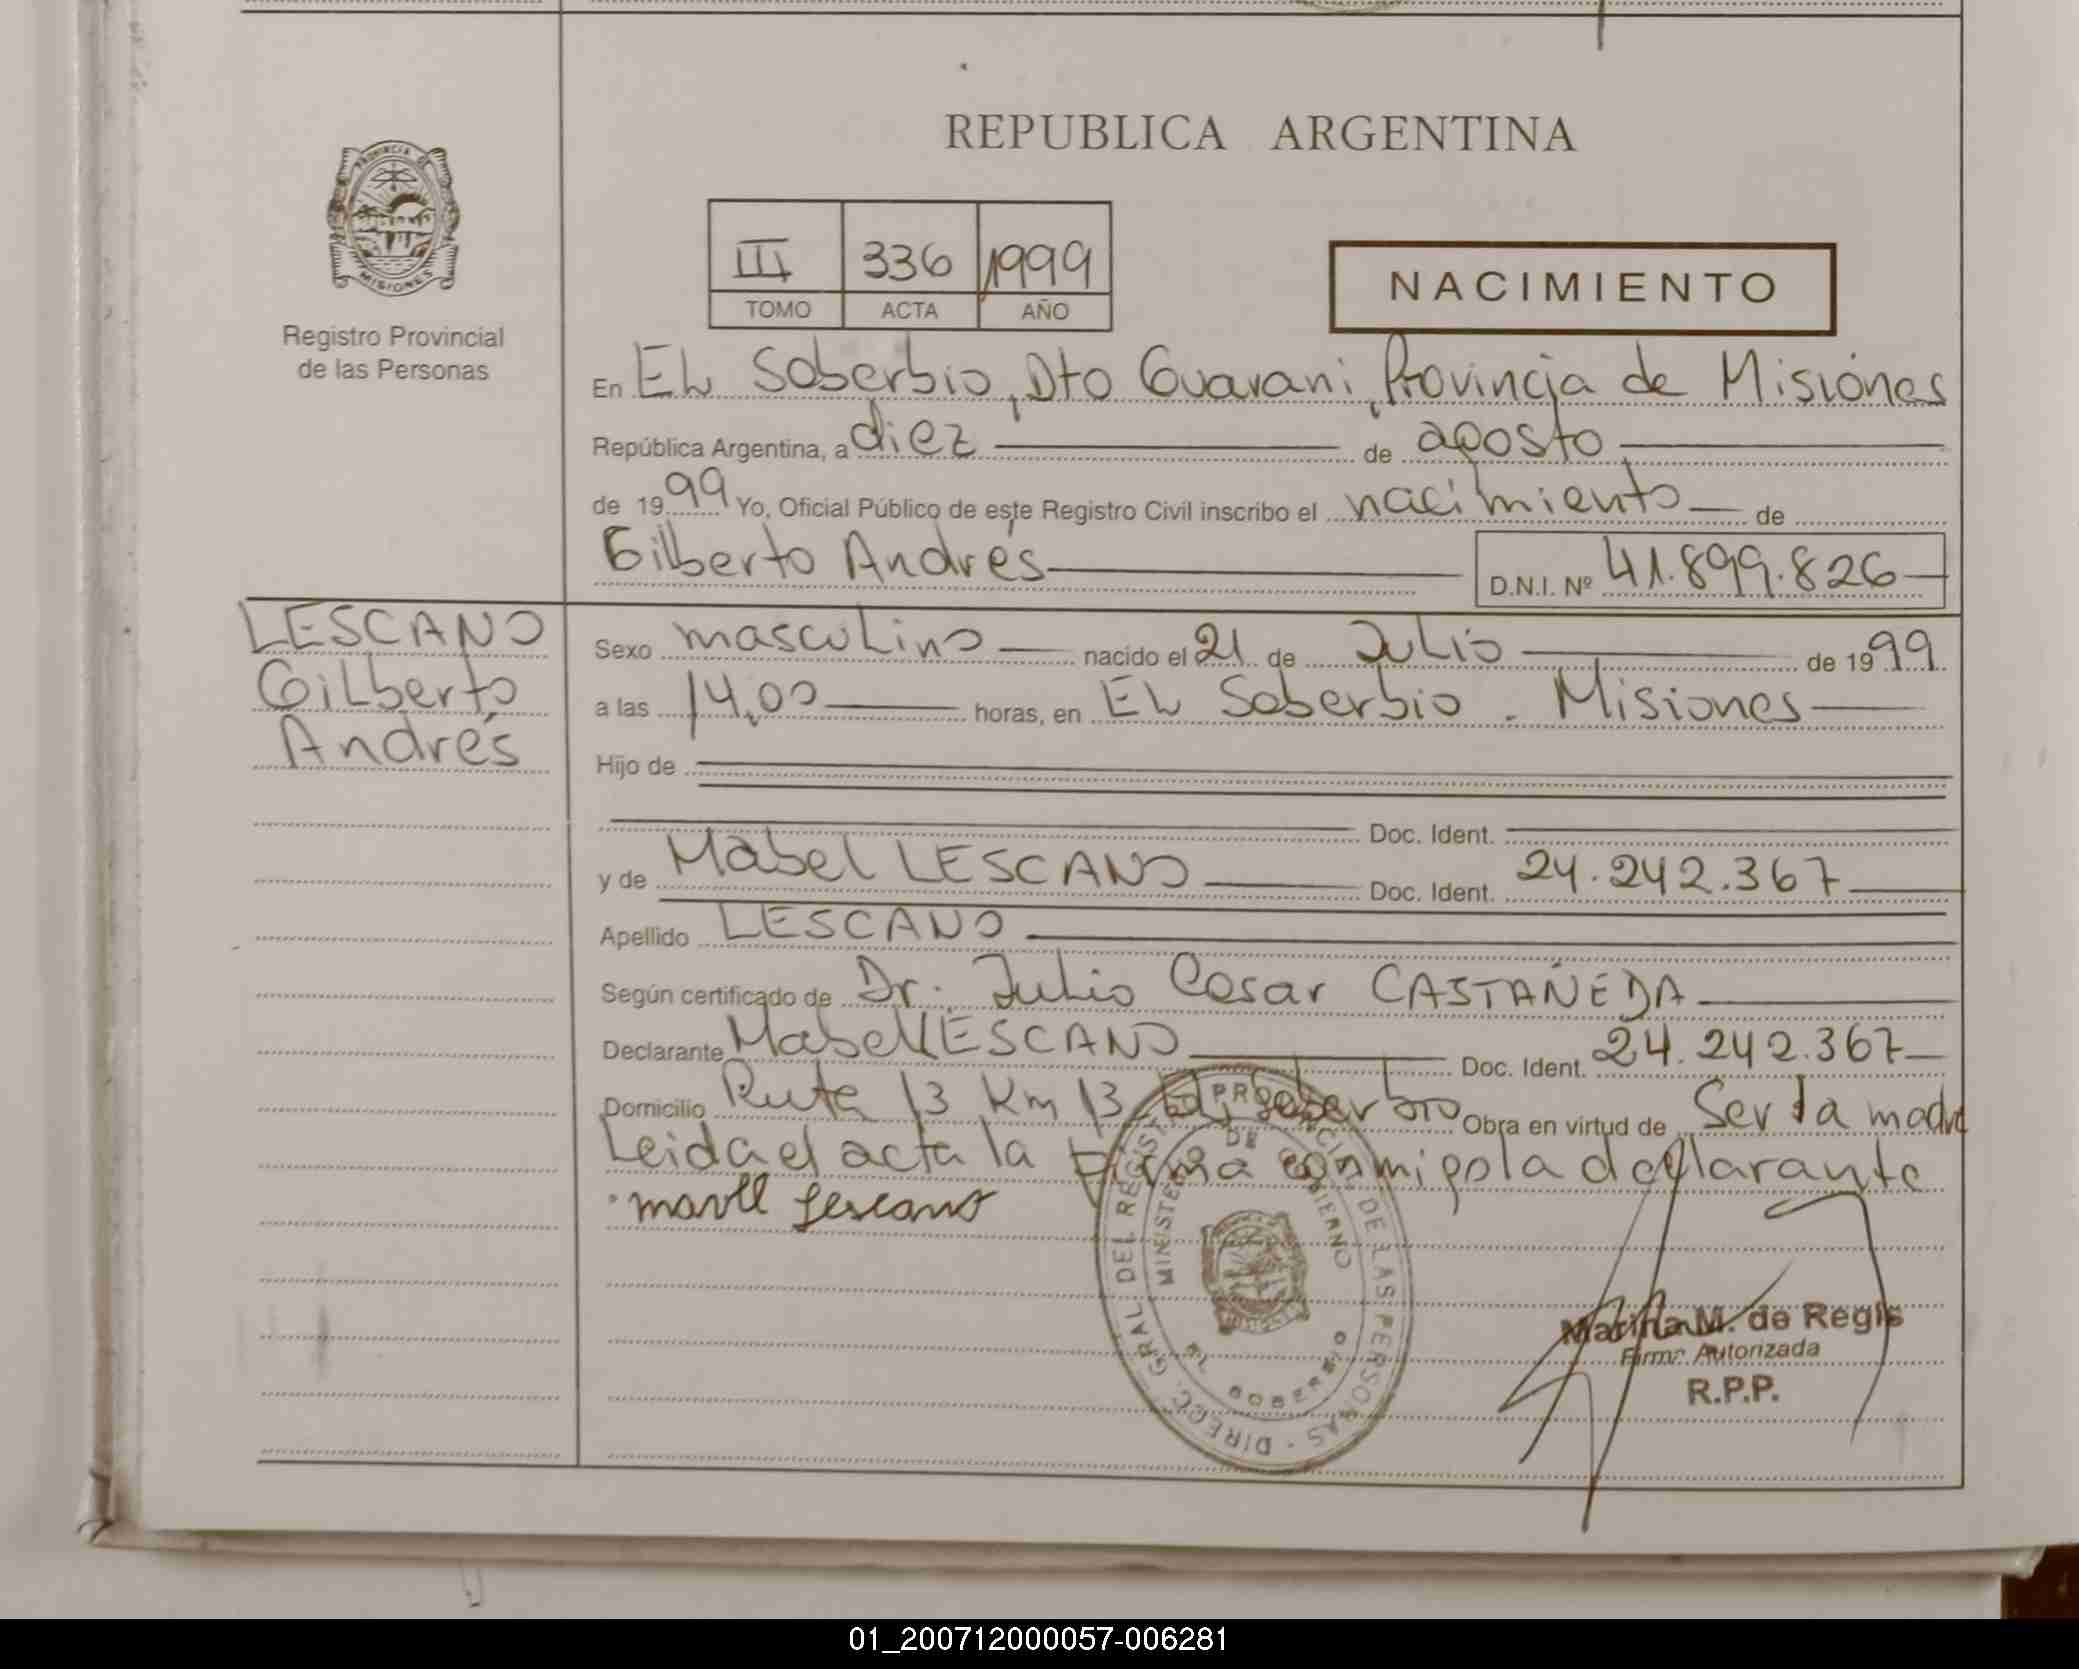 REPUBLICA ARGENTINA
PROVINCIA DE MISIONES
Registro Provincial
de las Personas
III 336 1999
TOMO ACTA AÑO
NACIMIENTO
En EL Soberbio, Dto Guarani, Provincia de Misiónes
República Argentina, a diez de agosto
de 1999 Yo, Oficial Público de este Registro Civil inscribo el nacimiento de
Gilberto Andrés D.N.I. Nº 41.899.826
LESCANO
Gilberto
Andrés
Sexo masculino nacido el 21 de Julio de 1999
a las 14,00 horas, en EL Soberbio - Misiones
Hijo de
Doc. Ident.
y de Mabel LESCANO Doc. Ident. 24.242.367
Apellido LESCANO
Según certificado de Dr. Julio Cesar CASTAÑEDA
Declarante Mabel LESCANO Doc. Ident. 24.242.367
Domicilio Ruta 13 Km 13 El Soberbio Obra en virtud de Ser la madre
Leida el acta la firma conmigo la declarante
mavel Lescano
DIRECC. GRAL DEL REGISTRO PROVINCIAL DE LAS PERSONAS
MINISTERIO DE GOBIERNO
EL SOBERBIO
Marina M. de Regis
Firma Autorizada
R.P.P.
01_200712000057-006281